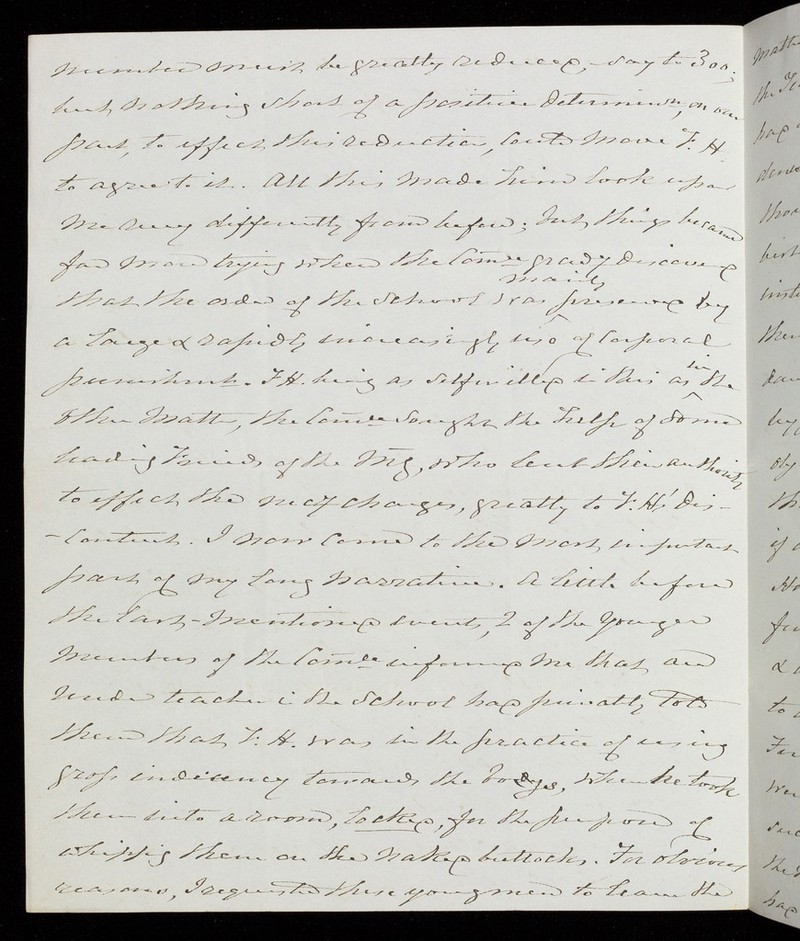 number must be greatly reduced, - say to 300;
but nothing short of a positive determinn, on our
part, to effect this reduction, could move F. H.
to agree to it. All this made him look upon
me very differently from before; but things became
far more trying when the Comee grady discovered
mainly
that the order of the School was preserved by
a large & rapidly increasingly use of Corporal
punishment. F.H. being as selfwilled in this as in the
other matter, the Comee sought the help of some
leading Friends of the Mg, who lent their authority
to effect the necy changes, greatly to F. H's dis-
-content. I now come to the most important
part of my long narrative. A little before
the last-mentioned event, 2 of the younger
members of the Comee informed me that an
under teacher in the School had privately told
them that F. H. was in the practice of using
gross indecency towards the boys, when he took
them into a room, locked, for the purpose of
whipping them on the naked buttocks. For obvious
reasons, I requested these young men to leave the